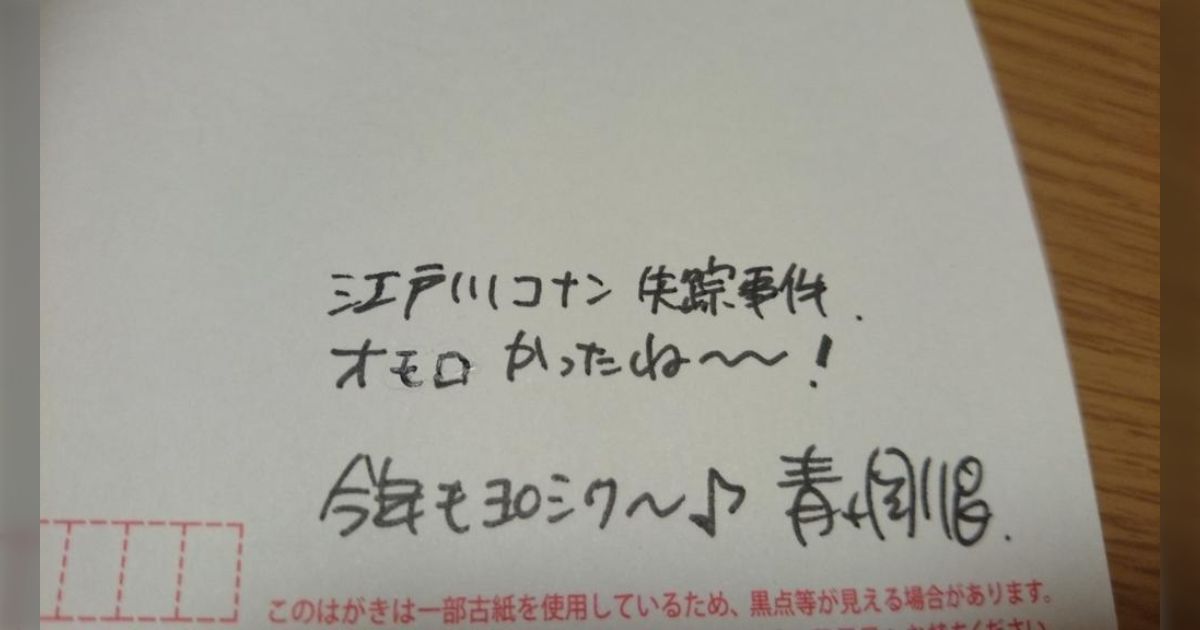 江戸川コナン 失踪事件.
オモロかったね〜〜!
今年もヨロシク〜♪ 青山剛昌.
このはがきは一部古紙を使用しているため、黒点等が見える場合があります。